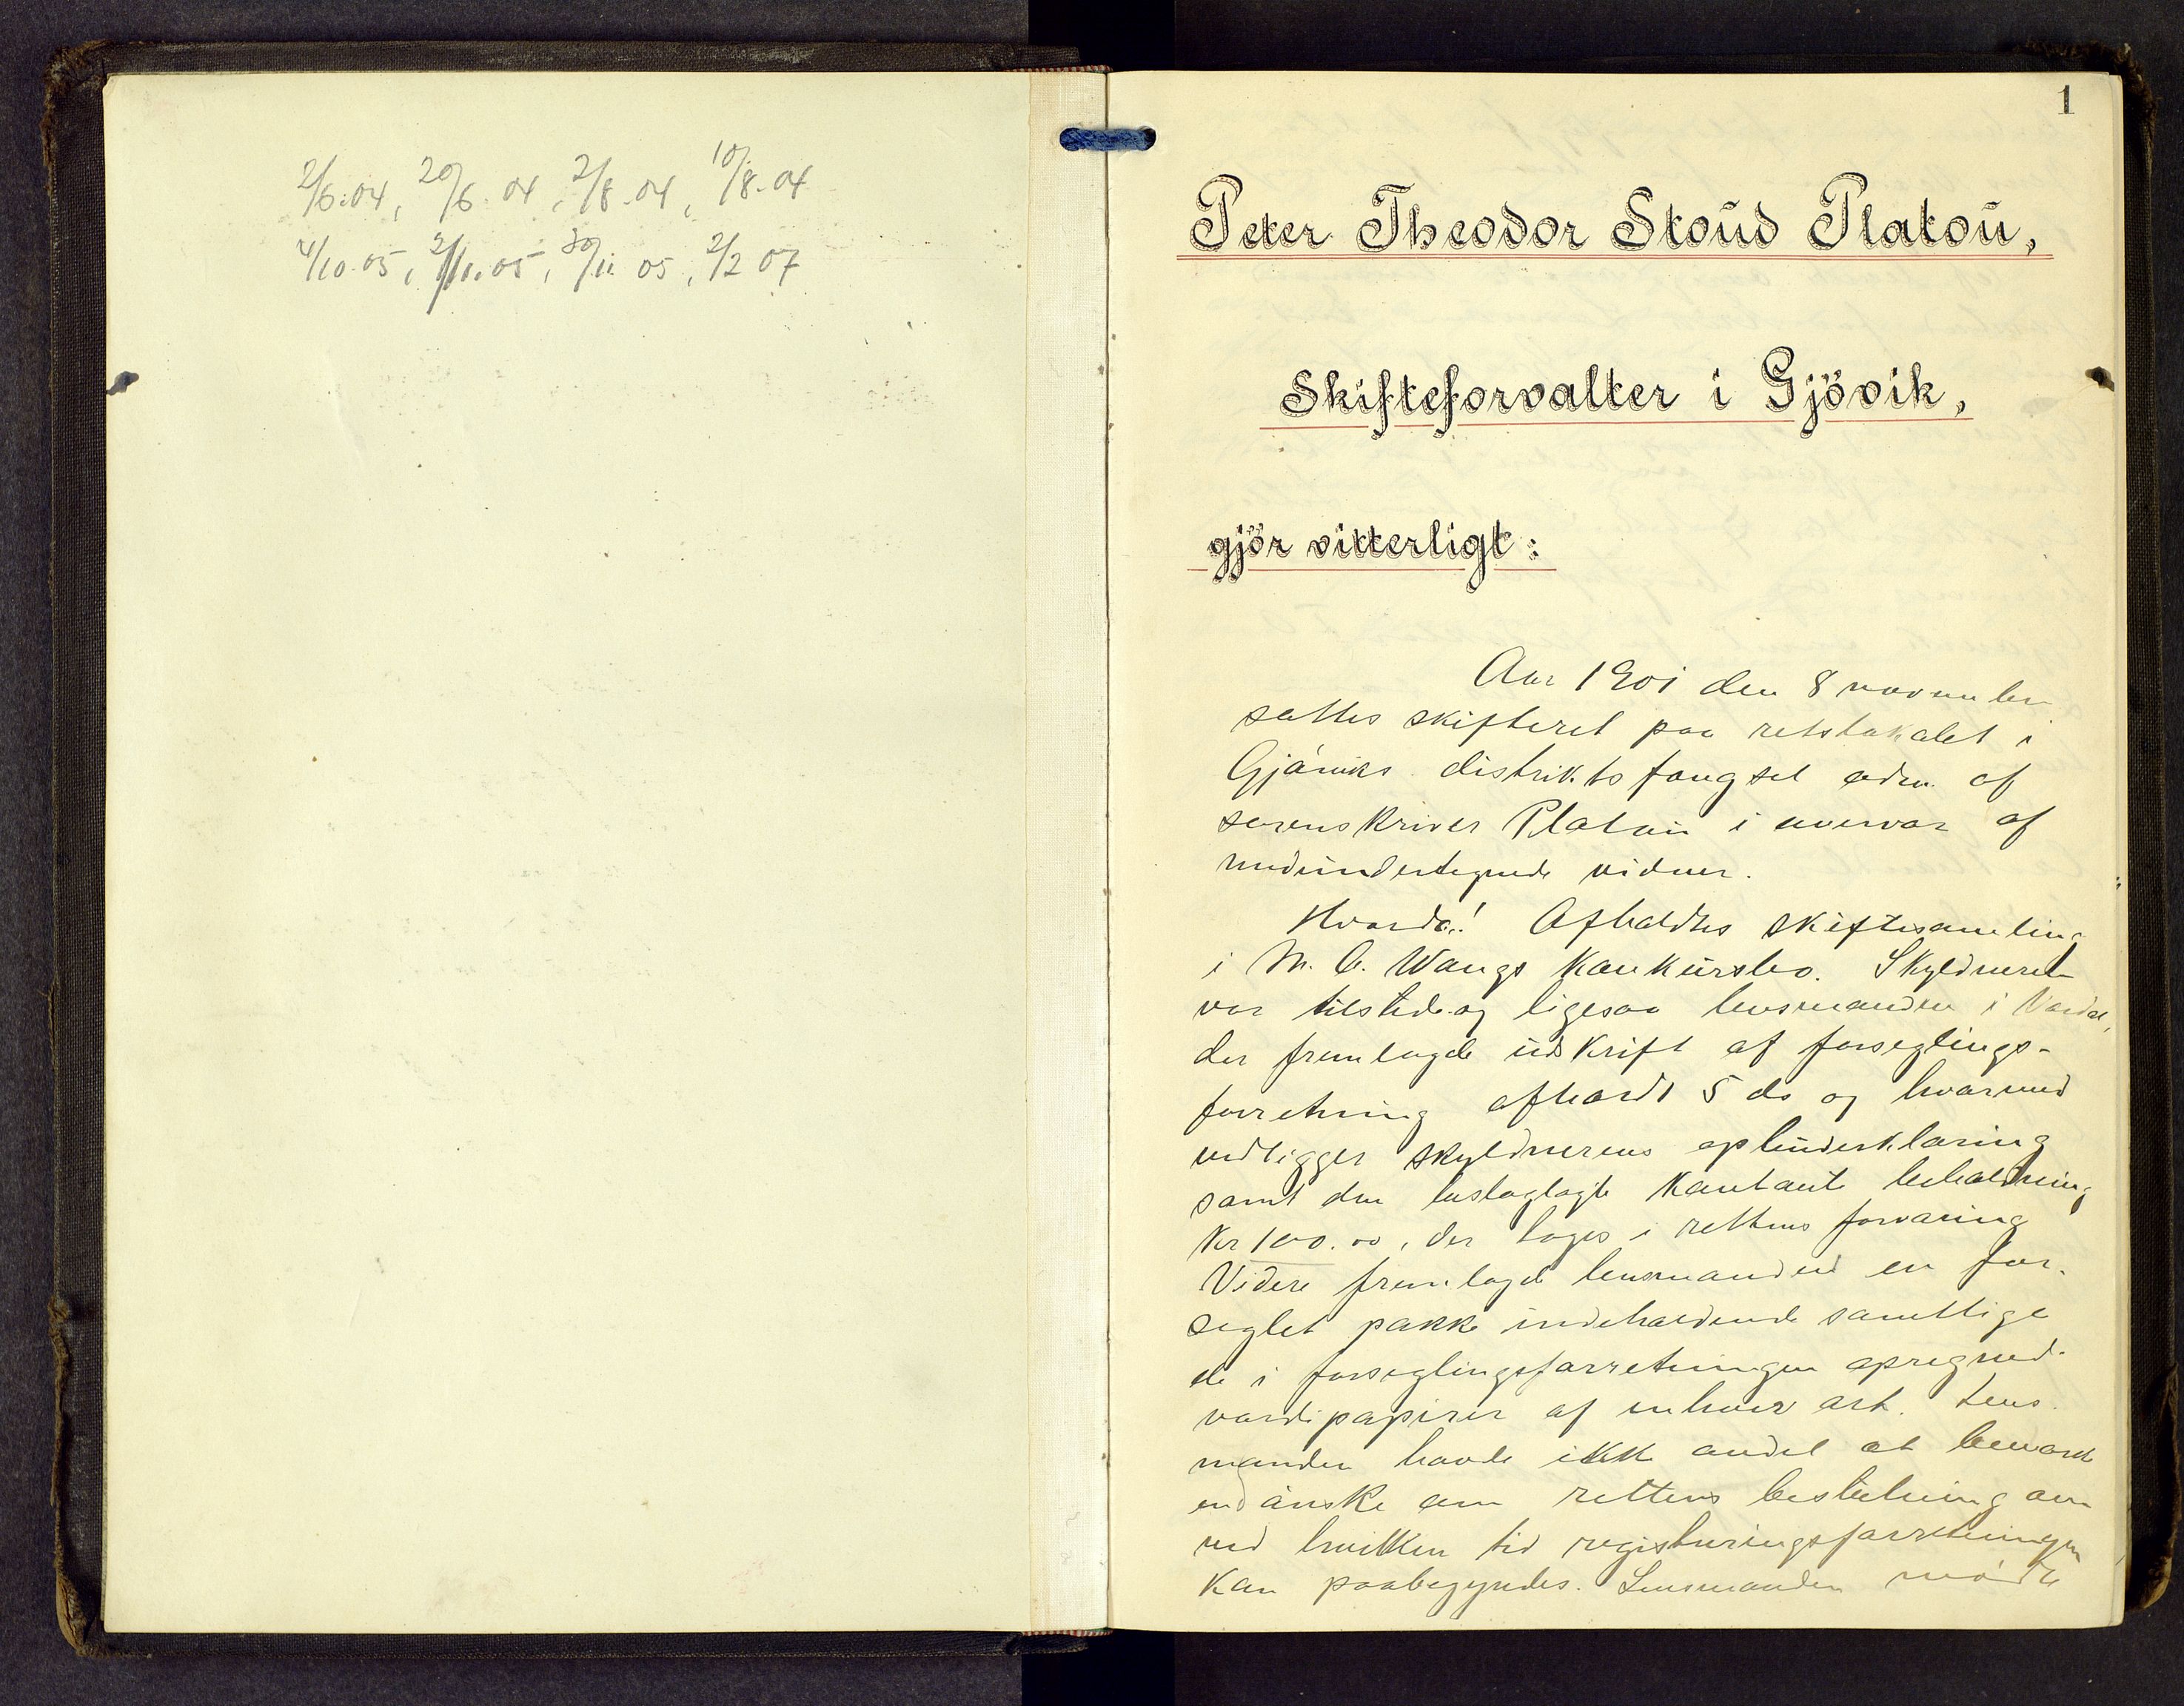 2/6.04, 20/6.04, 2/8.04, 10/8.04
4/10.05, 2/11.05, 30/11 05, 2/2 07
1
Peter Theodor Stoŭd Platoŭ,
Skifteforvalter i Gjövik,
gjör vitterligt:
Aar 1901 den 8 november
sattes skifteret paa retslokalet i
Gjöviks distriktsfængsel adm. af
sorenskriver Platoŭ i overvær af
medŭndertegnede vidner.
Hvorda! Afholdtes skiftesamling
i M. O. Wangs konkŭrsbo. Skyldneren
var tilstede og ligesaa lensmanden i Vardal,
der fremlagde ŭdskrift af forseglings-
forretning afholdt 5 ds og hvormed
vedligger skyldnerens opbŭdserklæring
samt den beslaglagte kontante beholdning
Kr 100.00, der toges i rettens forvaring
Videre fremlagde lensmanden en for-
seglet pakke indeholdende samtlige
de i forseglingsforretningen opregnede
værdipapirer af enhver art. Lens-
manden havde ikke andet at bemærke
end önske om rettens beslutning om
ved hvilken tid registreringsforretningen
kan paabegyndes. Lensmanden mödte